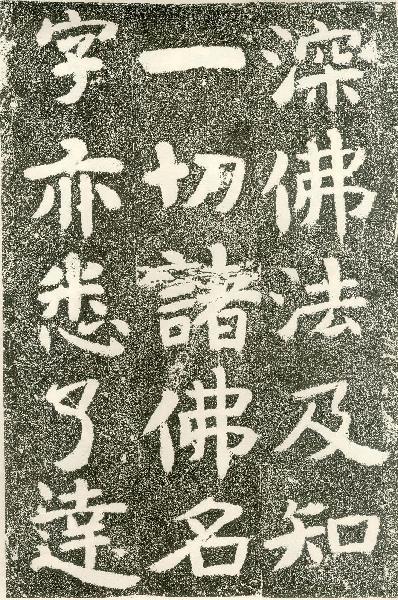 深佛法及知
一切諸佛名
字亦悉了達